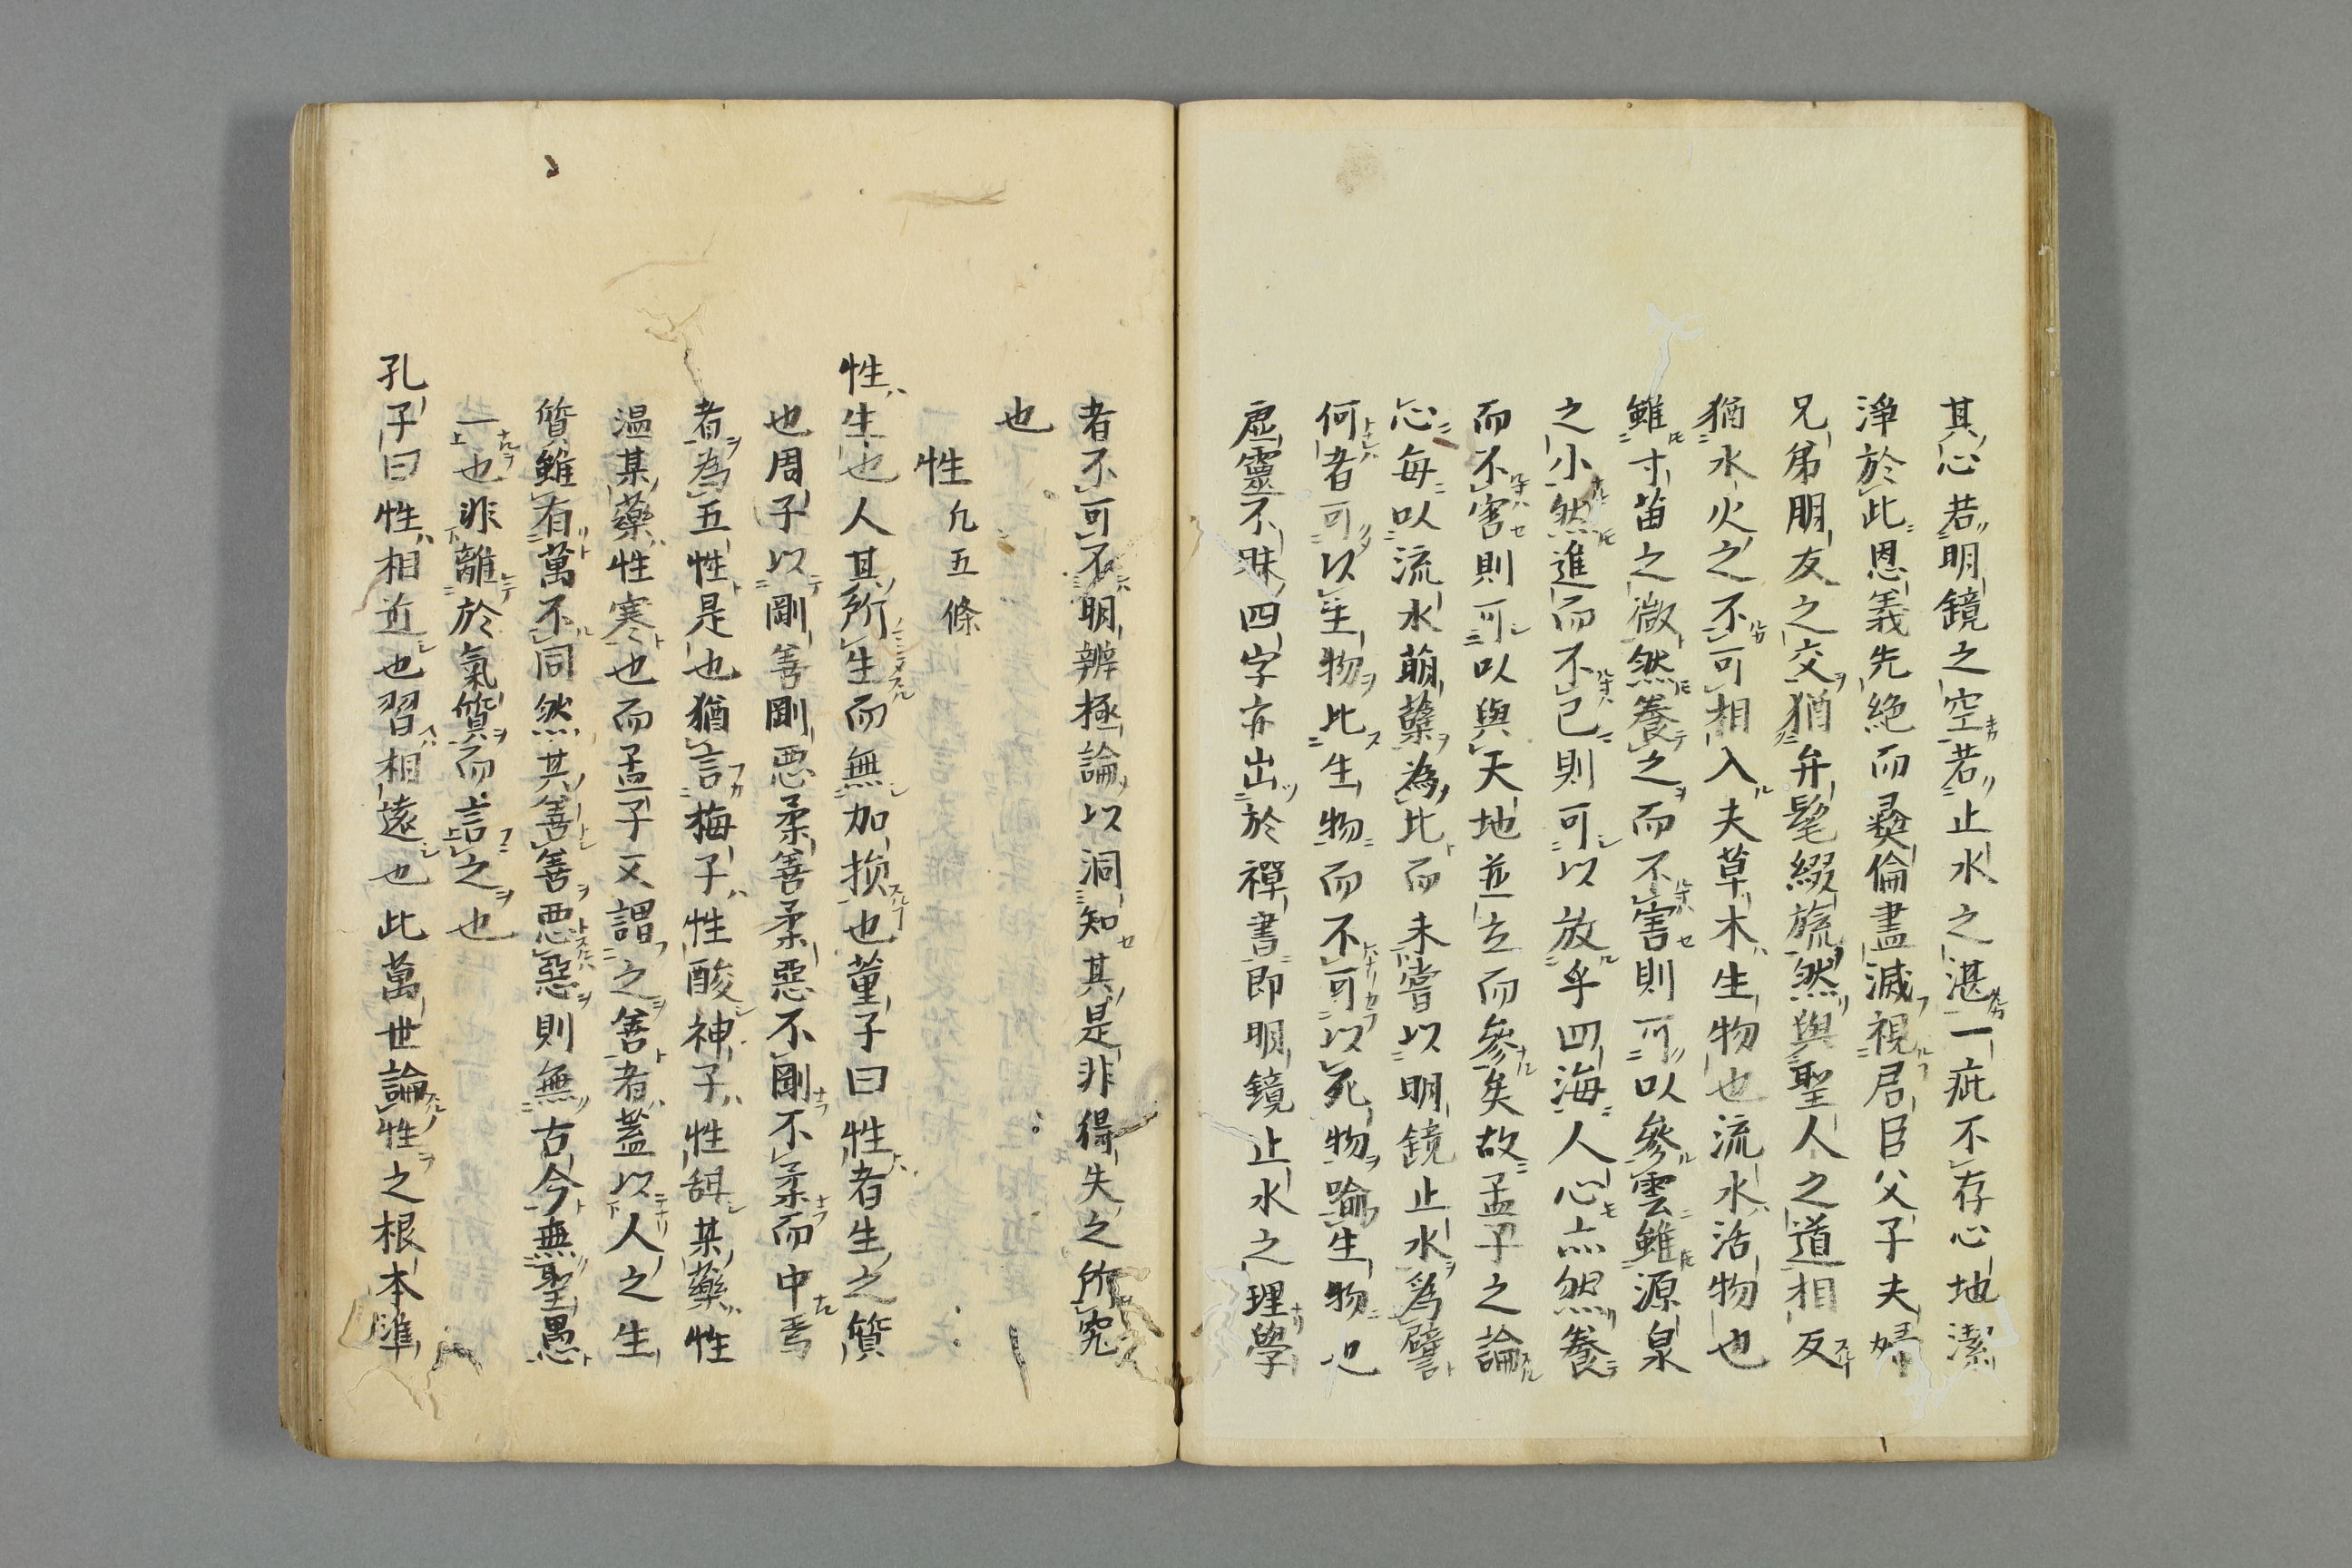 其心若明鏡之空若止水之湛一疵不存心地潔
淨於此恩義先絶而彛倫盡滅視君臣父子夫婦
兄弟朋友之交猶弁髦綴旒然與聖人之道相反
猶水火之不可相入夫草木生物也流水活物也
雖寸苗之微然養之而不害則可以參雲雖源泉
之小然進而不已則可以放乎四海人心亦然養
而不害則可以與天地並立而參矣故孟子之論
心每以流水萠蘖為比而未嘗以明鏡止水爲譬
何者可以生物比生物而不可以死物喩生物也
虛靈不昧四字亦出於禪書即明鏡止水之理學
者不可不明辨極論以洞知其是非得失之所究
也
性 凡五條
性生也人其所生而無加損也董子曰性者生之質
也周子以剛善剛惡柔善柔惡不剛不柔而中焉
者為五性是也猶言梅子性酸神子性甜某藥性
温某藥性寒也而孟子又謂之善者蓋以人之生
質雖有萬不同然其善善惡惡則無古今無聖愚
一也非離於氣質而言之也
孔子曰性相近也習相遠也此萬世論性之根本準